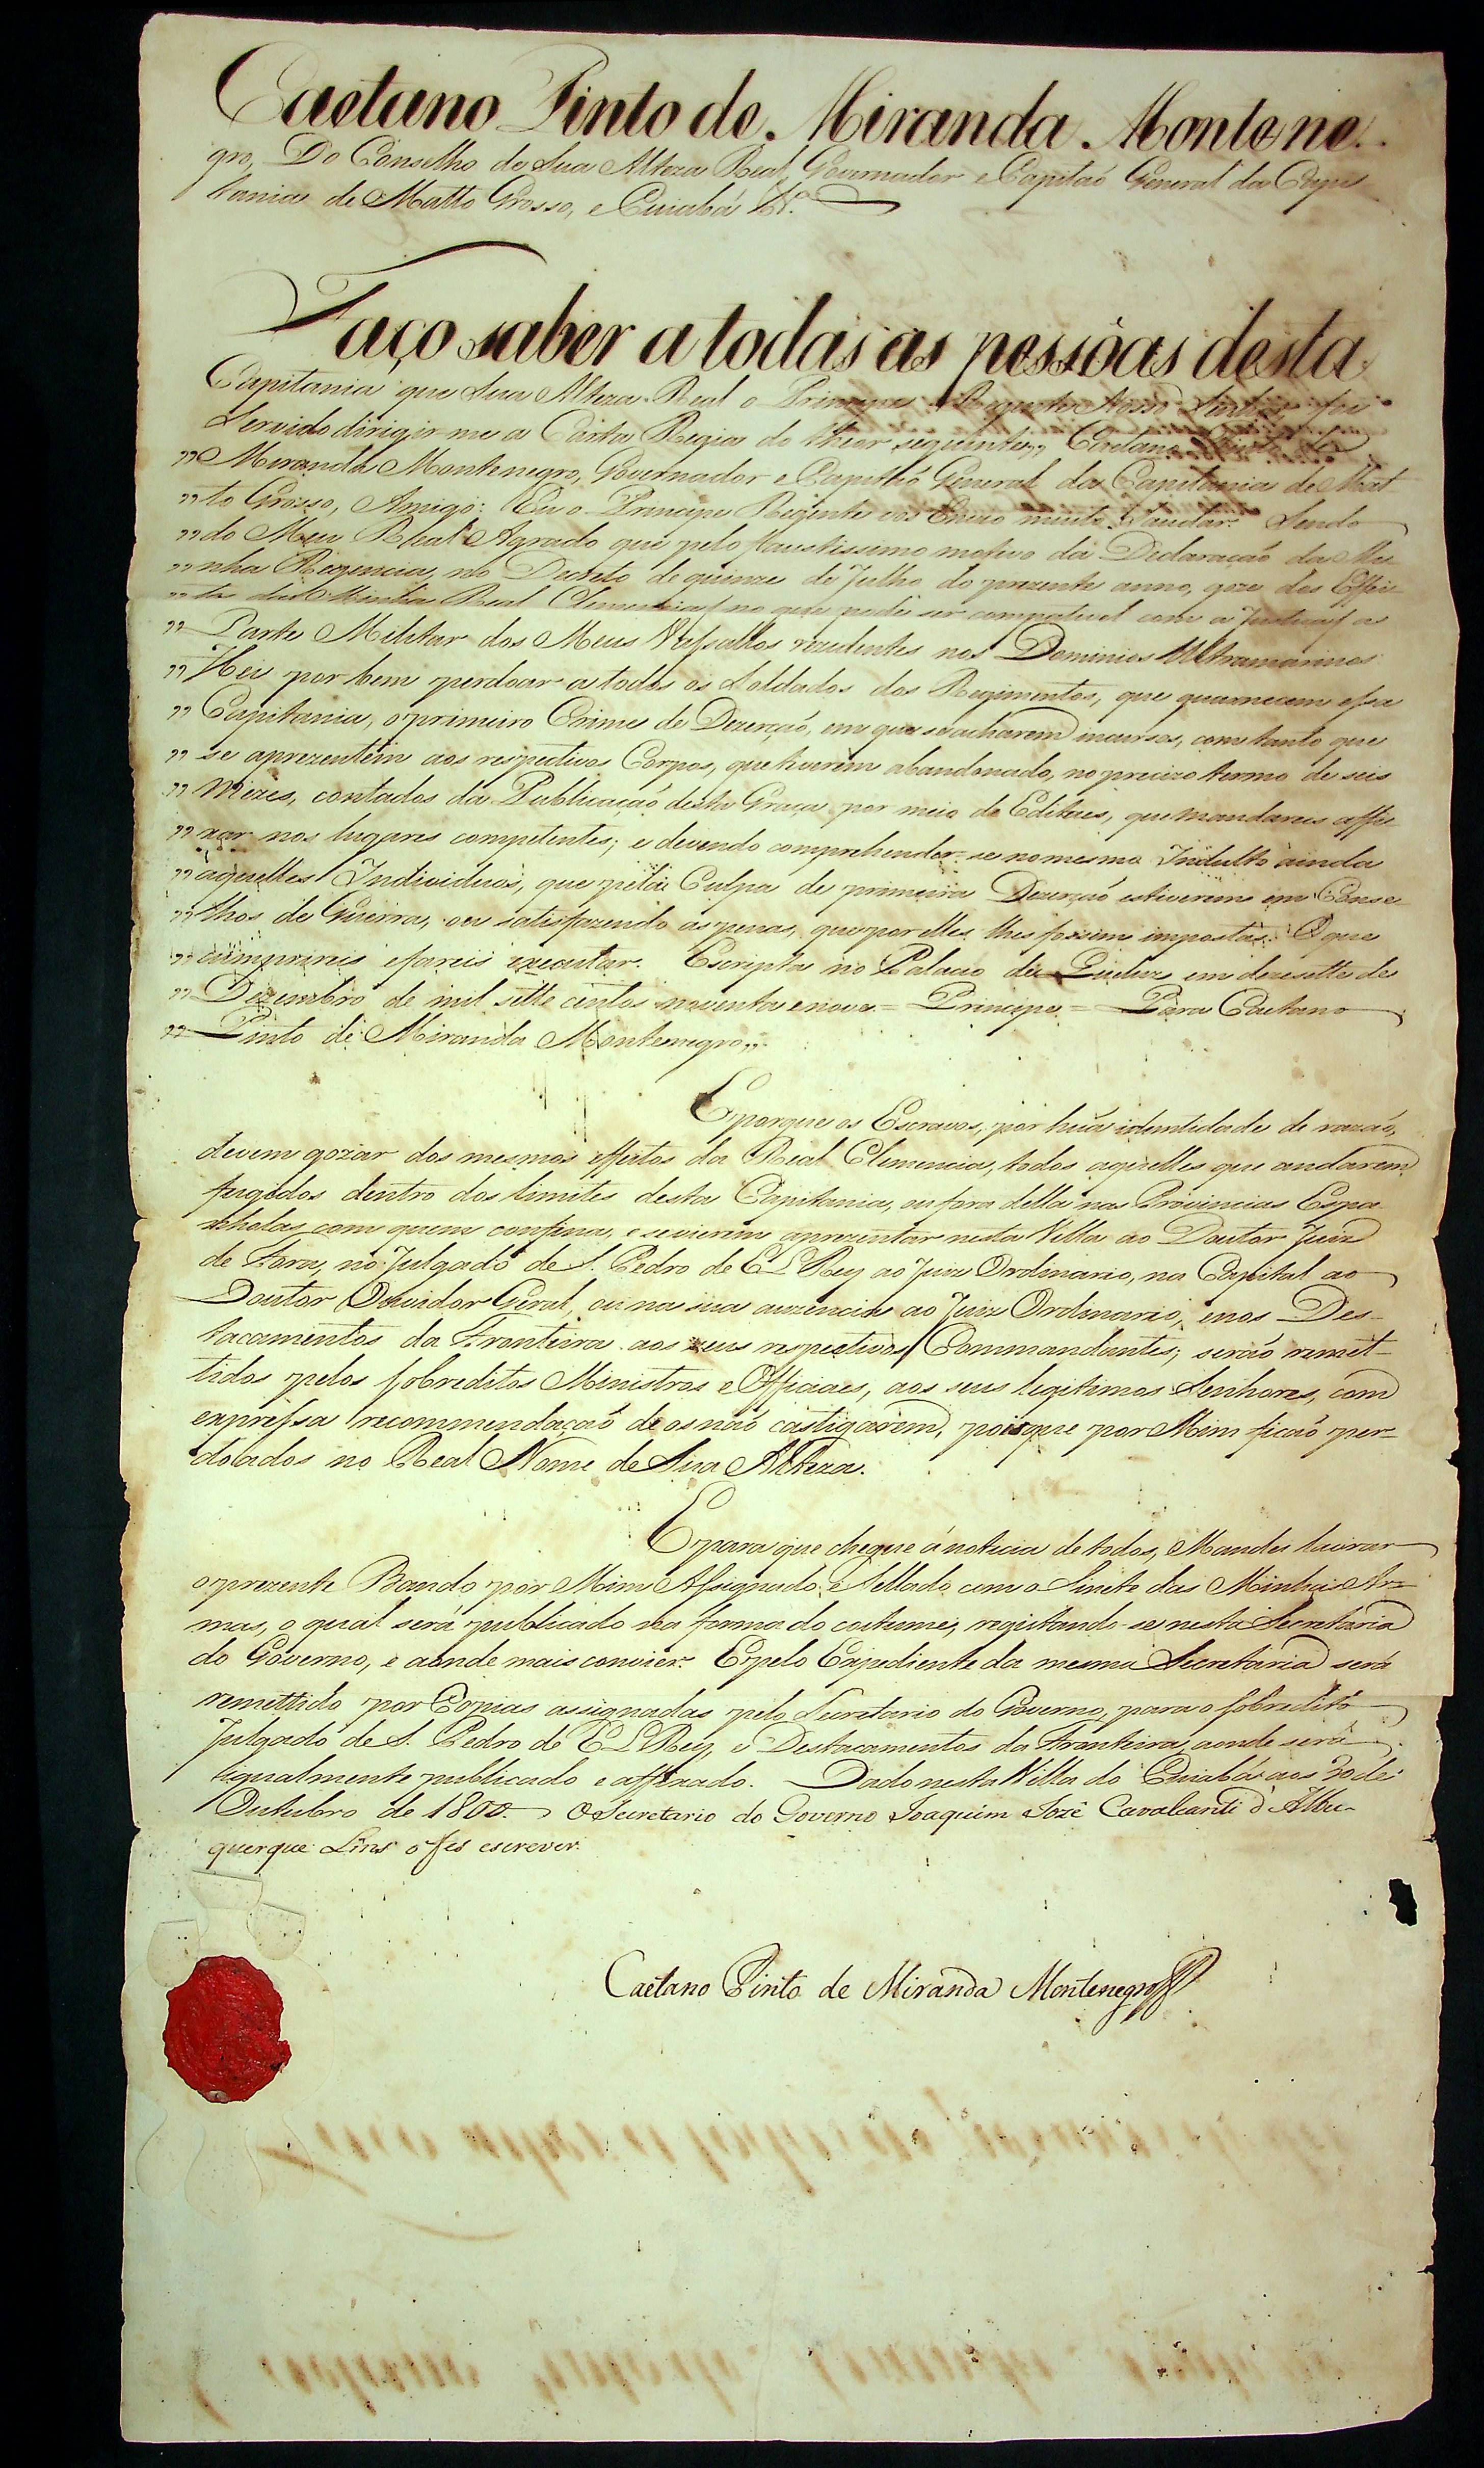 Caetano Pinto de Miranda Montene-
gro, Do Conselho de Sua Alteza Real, Governador e Capitaõ General da Capi-
tania de Matto Grosso, e Cuiabá &.ª
Faço saber a todas as pessôas desta
Capitania que Sua Alteza Real o Principe Regente Nosso Senhor, foi
Servido dirigir-me a Carta Regia do theor seguinte,, Caetano Pinto de
,, Miranda Montenegro, Governador e Capitaõ General da Capitania de Mat
,, to Grosso, Amigo: Eu o Principe Regente vos Envio muito Saudar. Sendo
,, do Meu Real Agrado que pelo faustissimo motivo da Declaraçaõ da Mi
,, nha Regencia, no Decreto de quinze de Julho do prezente anno, goze dos Effei
,, tos da Minha Real Clemencia (no que pode ser compativel com a Justiça) a
,, Parte Militar dos Meus Vassallos rezidentes nos Dominios Ultramarinos
,, Hei por bem perdoar a todos os Soldados dos Regimentos, que guarnecem essa
,, Capitania, o primeiro Crime de Dezerçaõ, em que se acharem incursos, com tanto que
,, se aprezentem aos respectivos Corpos, que tiverem abandonado, no precizo termo de seis
,, Mezes, contados da Publicaçaõ desta Graça por meio de Editaes, que mandareis affi
,, xar nos lugares competentes; e devendo comprehender-se no mesmo Indulto ainda
,, aquelles Individuos, que pela Culpa de primeira Dezerçaõ estiverem em Conse
,, lhos de Guerra, ou satisfazendo as penas, que por elles lhes fossem impostas. O que
,, cumprireis e fareis executar. Escripta no Palacio de Queluz em dezesette de
,, Dezembro de mil sette centos noventa e nove = Principe = Para Caetano
,, Pinto de Miranda Montenegro,,
E porque os Escravos, por huã identidade de razaõ,
devem gozar dos mesmos effeitos da Real Clemencia, todos aquelles que andarem
fugidos dentro dos limites desta Capitania, ou fora della nas Provincias Espa
nholas com quem confina, e se vierem aprezentar nesta Villa ao Doutor Juiz
de Fora, no Julgado de S. Pedro de El Rey ao Juiz Ordinario, na Capital ao
Doutor Ouvidor Geral, ou na sua auzencia ao Juiz Ordinario, e nos Des-
tacamentos da Fronteira aos seus respectivos Commandantes, seraõ remet-
tidos pelos sobreditos Ministros e Officiaes, aos seus legitimos Senhores, com
expressa recommendaçaõ de os naõ castigarem, poisque por Mim ficaõ per-
doados no Real Nome de Sua Alteza.
E para que chegue á noticia de todos, Mandei lavrar
o prezente Bando por Mim Assignado, e Sellado com o Sinete das Minhas Ar-
mas, o qual será publicado na forma do costume, registando-se nesta Secretaria
do Governo, e aonde mais convier. E pelo Expediente da mesma Secretaria será
remettido por Copias assignadas pelo Secretario do Governo, para o sobredito
Julgado de S. Pedro de El Rey, e Destacamentos da Fronteira, aonde será
igualmente publicado e affixado. Dado nesta Villa do Cuiabá aos 20 de
Outubro de 1800. O Secretario do Governo Joaquim Jozé Cavalcanti d'Albu-
querque Lins o fes escrever.
Caetano Pinto de Miranda Montenegro